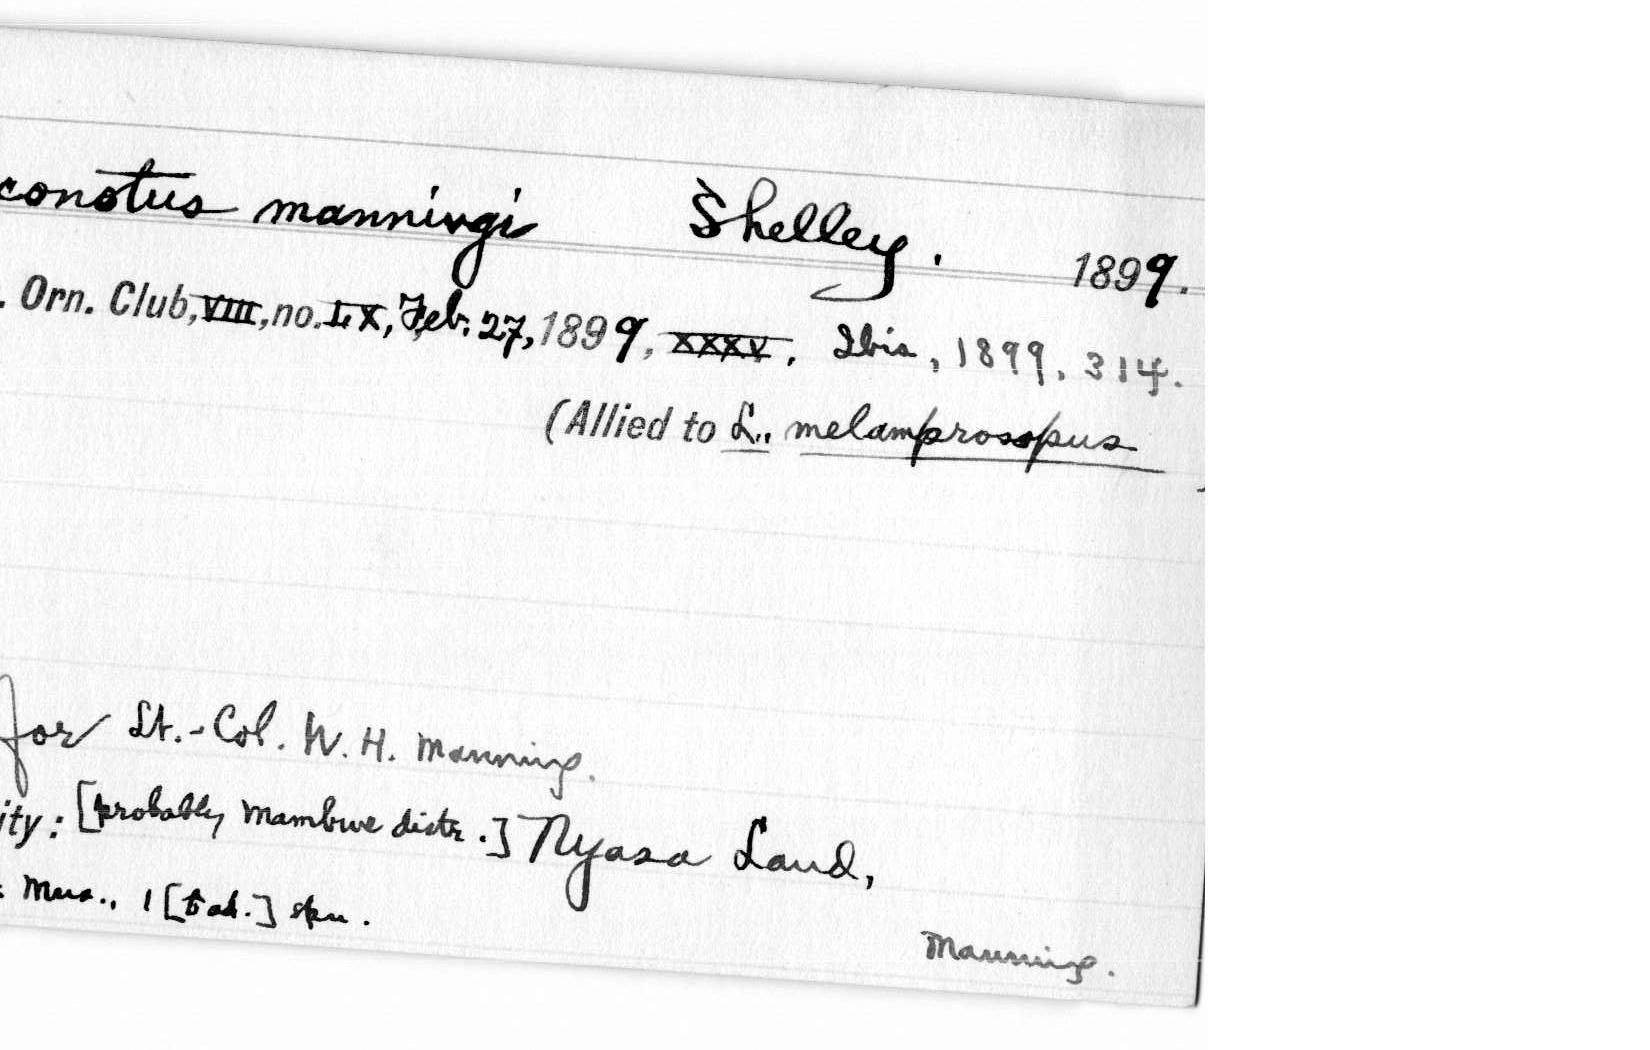 conotus manningi Shelley. 1899.
. Orn. Club, VIII, no. LX, Feb. 27, 1899, XXXV. Ibis, 1899, 314.
(Allied to L. melamprosopus
for Lt.-Col. W. H. Manning.
ity: [probably Mambwe distr.] Nyasa Land,
Mus., 1 [ad.] spm.
Manning.